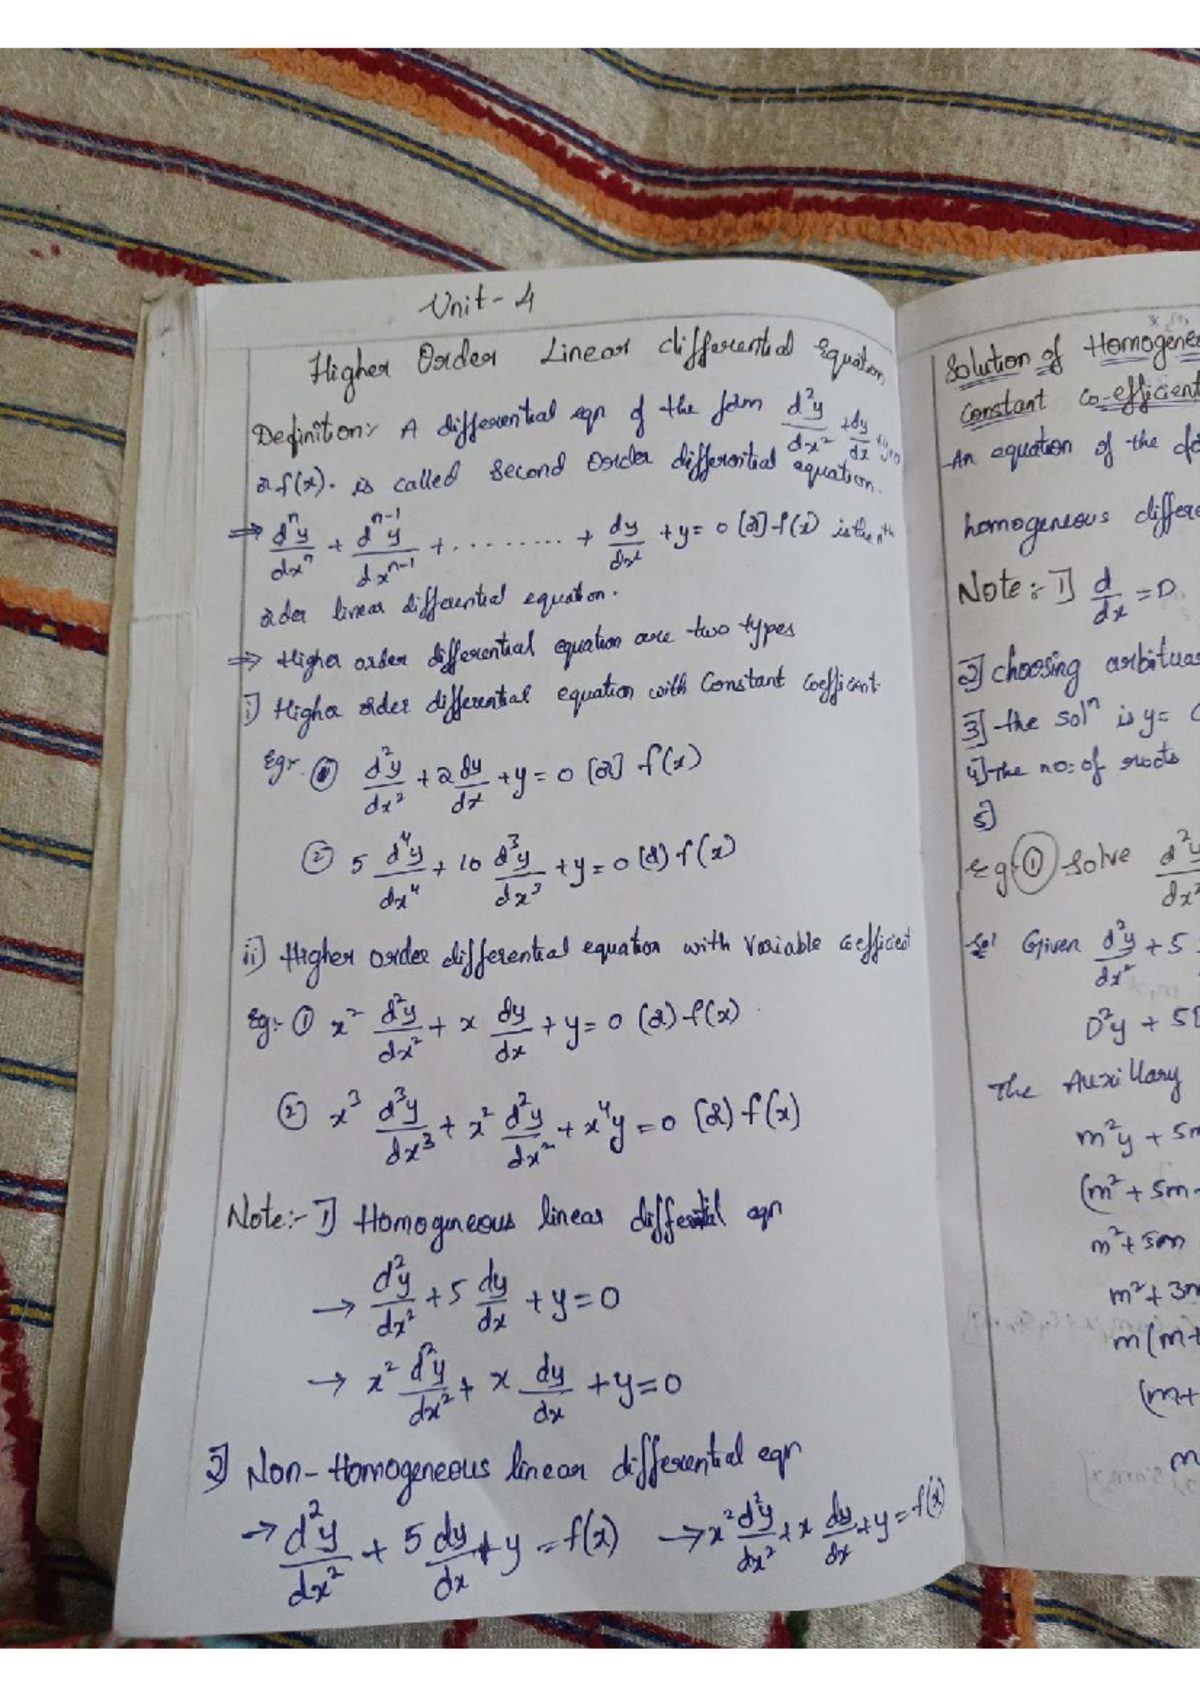 Unit - 4
Higher Order Linear differential Equation
Definition:- A differential eqn of the form d²y/dx² + dy/dx + y=0
or f(x). is called Second Order differential equation.
⇒ dⁿy/dxⁿ + dⁿ⁻¹y/dxⁿ⁻¹ + ......... + dy/dx + y = 0 [or] f(x) is the nth
order linear differential equation.
⇒ Higher order differential equation are two types
i] Higher order differential equation with Constant Coefficient.
Eg:- ① d²y/dx² + 2 dy/dx + y = 0 [or] f(x)
② 5 d⁴y/dx⁴ + 10 d³y/dx³ + y = 0 (or) f(x)
ii] Higher order differential equation with Variable coefficient
Eg:- ① x² d²y/dx² + x dy/dx + y = 0 (or) f(x)
② x³ d³y/dx³ + x² d²y/dx² + x⁴y = 0 (or) f(x)
Note:- 1] Homogeneous linear differential eqn
→ d²y/dx² + 5 dy/dx + y = 0
→ x² d²y/dx² + x dy/dx + y = 0
2] Non-Homogeneous linear differential eqn
→ d²y/dx² + 5 dy/dx + y = f(x) → x² d²y/dx² + x dy/dx + y = f(x)
Solution of Homogene
Constant Co-efficient
An equation of the
homogeneous differe
Note:- 1] d/dx = D
2] choosing arbituar
3] the solⁿ is y=
4] The no: of roots
5]
Eg:- ① Solve d²y/dx²
Sol Given d²y/dx² + 5
D²y + 5
The Auxillary
m²y + 5m
(m² + 5m
m² + 5m
m² + 3m
m(m+
(m+
m